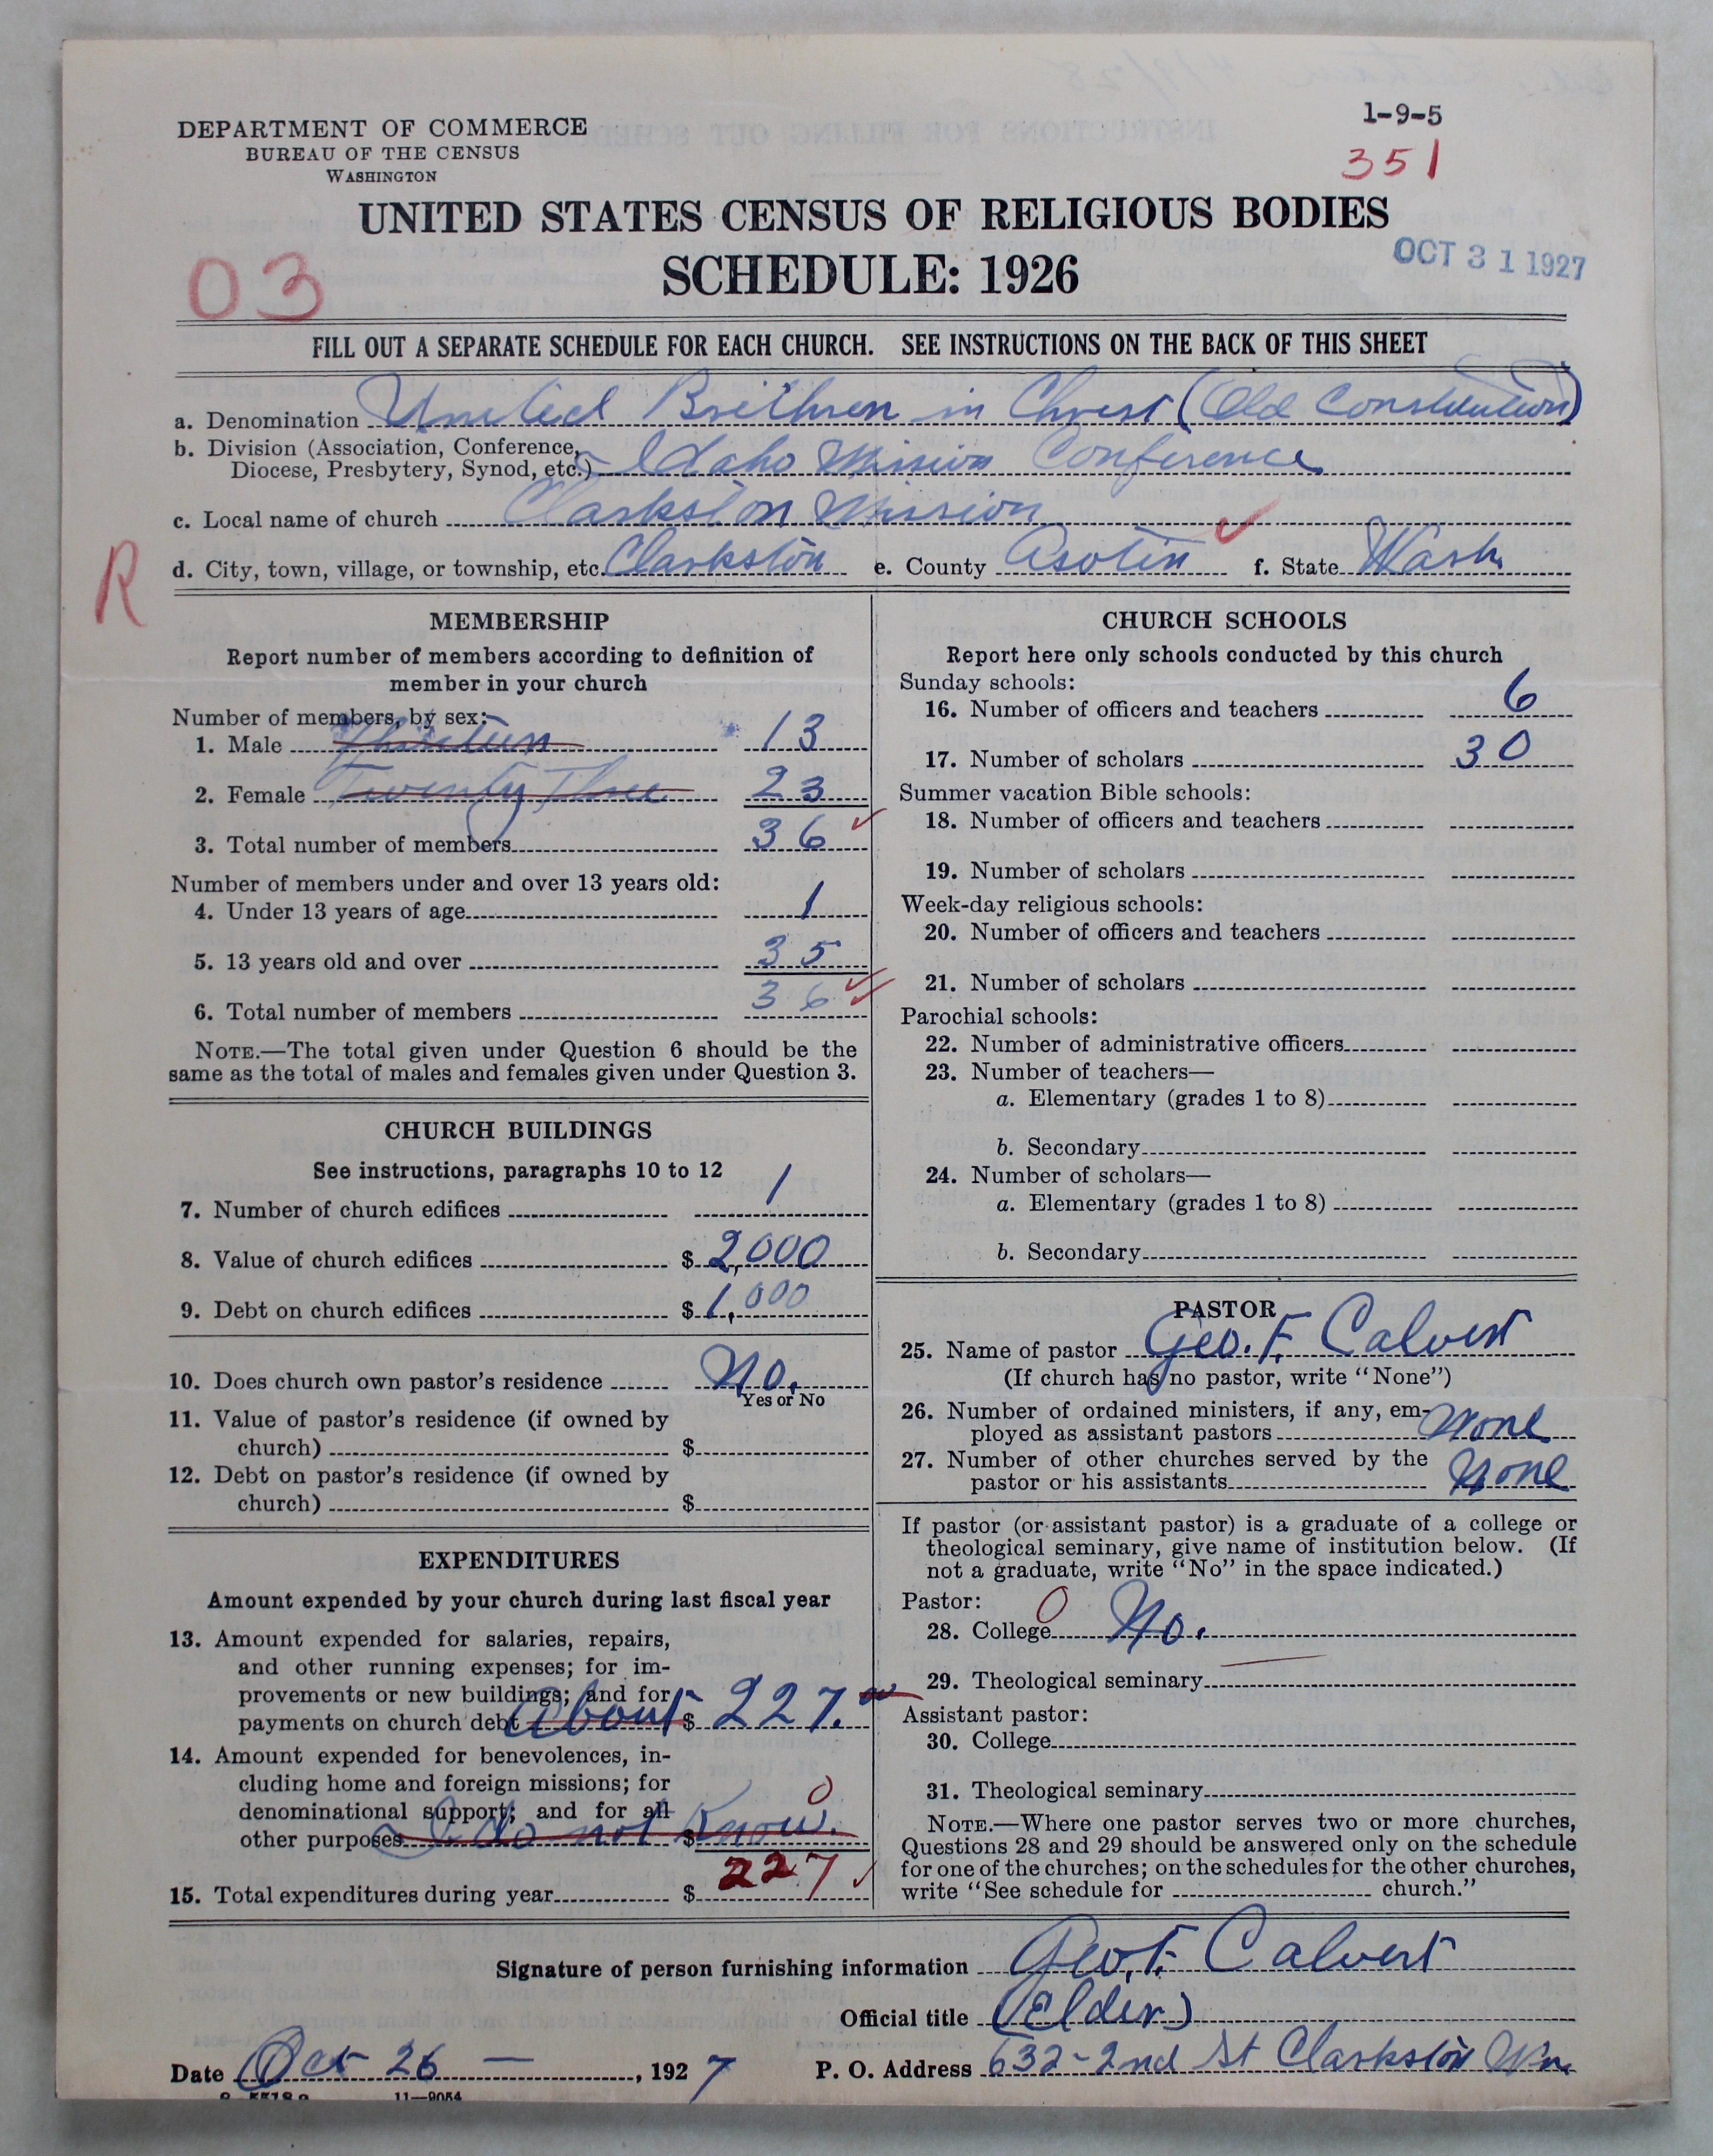 1-9-5
DEPARTMENT OF COMMERCE
BUREAU OF THE CENSUS
WASHINGTON
351
UNITED STATES CENSUS OF RELIGIOUS BODIES
SCHEDULE: 1926
OCT 31 1927
03
FILL OUT A SEPARATE SCHEDULE FOR EACH CHURCH. SEE INSTRUCTIONS ON THE BACK OF THIS SHEET
a. Denomination United Brethren in Christ (Old Constitution)
b. Division (Association, Conference,
Diocese, Presbytery, Synod, etc.) Idaho Mission Conference
c. Local name of church Clarkston Mission
R
d. City, town, village, or township, etc. Clarkston e. County Asotin f. State Wash
MEMBERSHIP
Report number of members according to definition of
member in your church
Number of members, by sex:
1. Male Thirteen 13
2. Female Twenty Three 23
3. Total number of members 36
Number of members under and over 13 years old:
4. Under 13 years of age 1
5. 13 years old and over 35
6. Total number of members 36
NOTE.—The total given under Question 6 should be the
same as the total of males and females given under Question 3.
CHURCH BUILDINGS
See instructions, paragraphs 10 to 12
7. Number of church edifices 1
8. Value of church edifices $ 2,000
9. Debt on church edifices $ 1,000
10. Does church own pastor's residence No.
Yes or No
11. Value of pastor's residence (if owned by
church) $
12. Debt on pastor's residence (if owned by
church) $
EXPENDITURES
Amount expended by your church during last fiscal year
13. Amount expended for salaries, repairs,
and other running expenses; for im-
provements or new buildings; and for
payments on church debt About $ 227.
14. Amount expended for benevolences, in-
cluding home and foreign missions; for
denominational support; and for all 0
other purposes I do not $ Know.
15. Total expenditures during year $ 227
CHURCH SCHOOLS
Report here only schools conducted by this church
Sunday schools:
16. Number of officers and teachers 6
17. Number of scholars 30
Summer vacation Bible schools:
18. Number of officers and teachers
19. Number of scholars
Week-day religious schools:
20. Number of officers and teachers
21. Number of scholars
Parochial schools:
22. Number of administrative officers
23. Number of teachers—
a. Elementary (grades 1 to 8)
b. Secondary
24. Number of scholars—
a. Elementary (grades 1 to 8)
b. Secondary
PASTOR
25. Name of pastor Geo. F. Calvert
(If church has no pastor, write "None")
26. Number of ordained ministers, if any, em-
ployed as assistant pastors None
27. Number of other churches served by the
pastor or his assistants None
If pastor (or assistant pastor) is a graduate of a college or
theological seminary, give name of institution below. (If
not a graduate, write "No" in the space indicated.)
Pastor: 0
28. College No.
29. Theological seminary
Assistant pastor:
30. College
31. Theological seminary
NOTE.—Where one pastor serves two or more churches,
Questions 28 and 29 should be answered only on the schedule
for one of the churches; on the schedules for the other churches,
write "See schedule for church."
Signature of person furnishing information Geo. F. Calvert
Official title (Elder)
Date Oct 26 —, 1927 P. O. Address 632-2nd St Clarkston Wn
11—9054